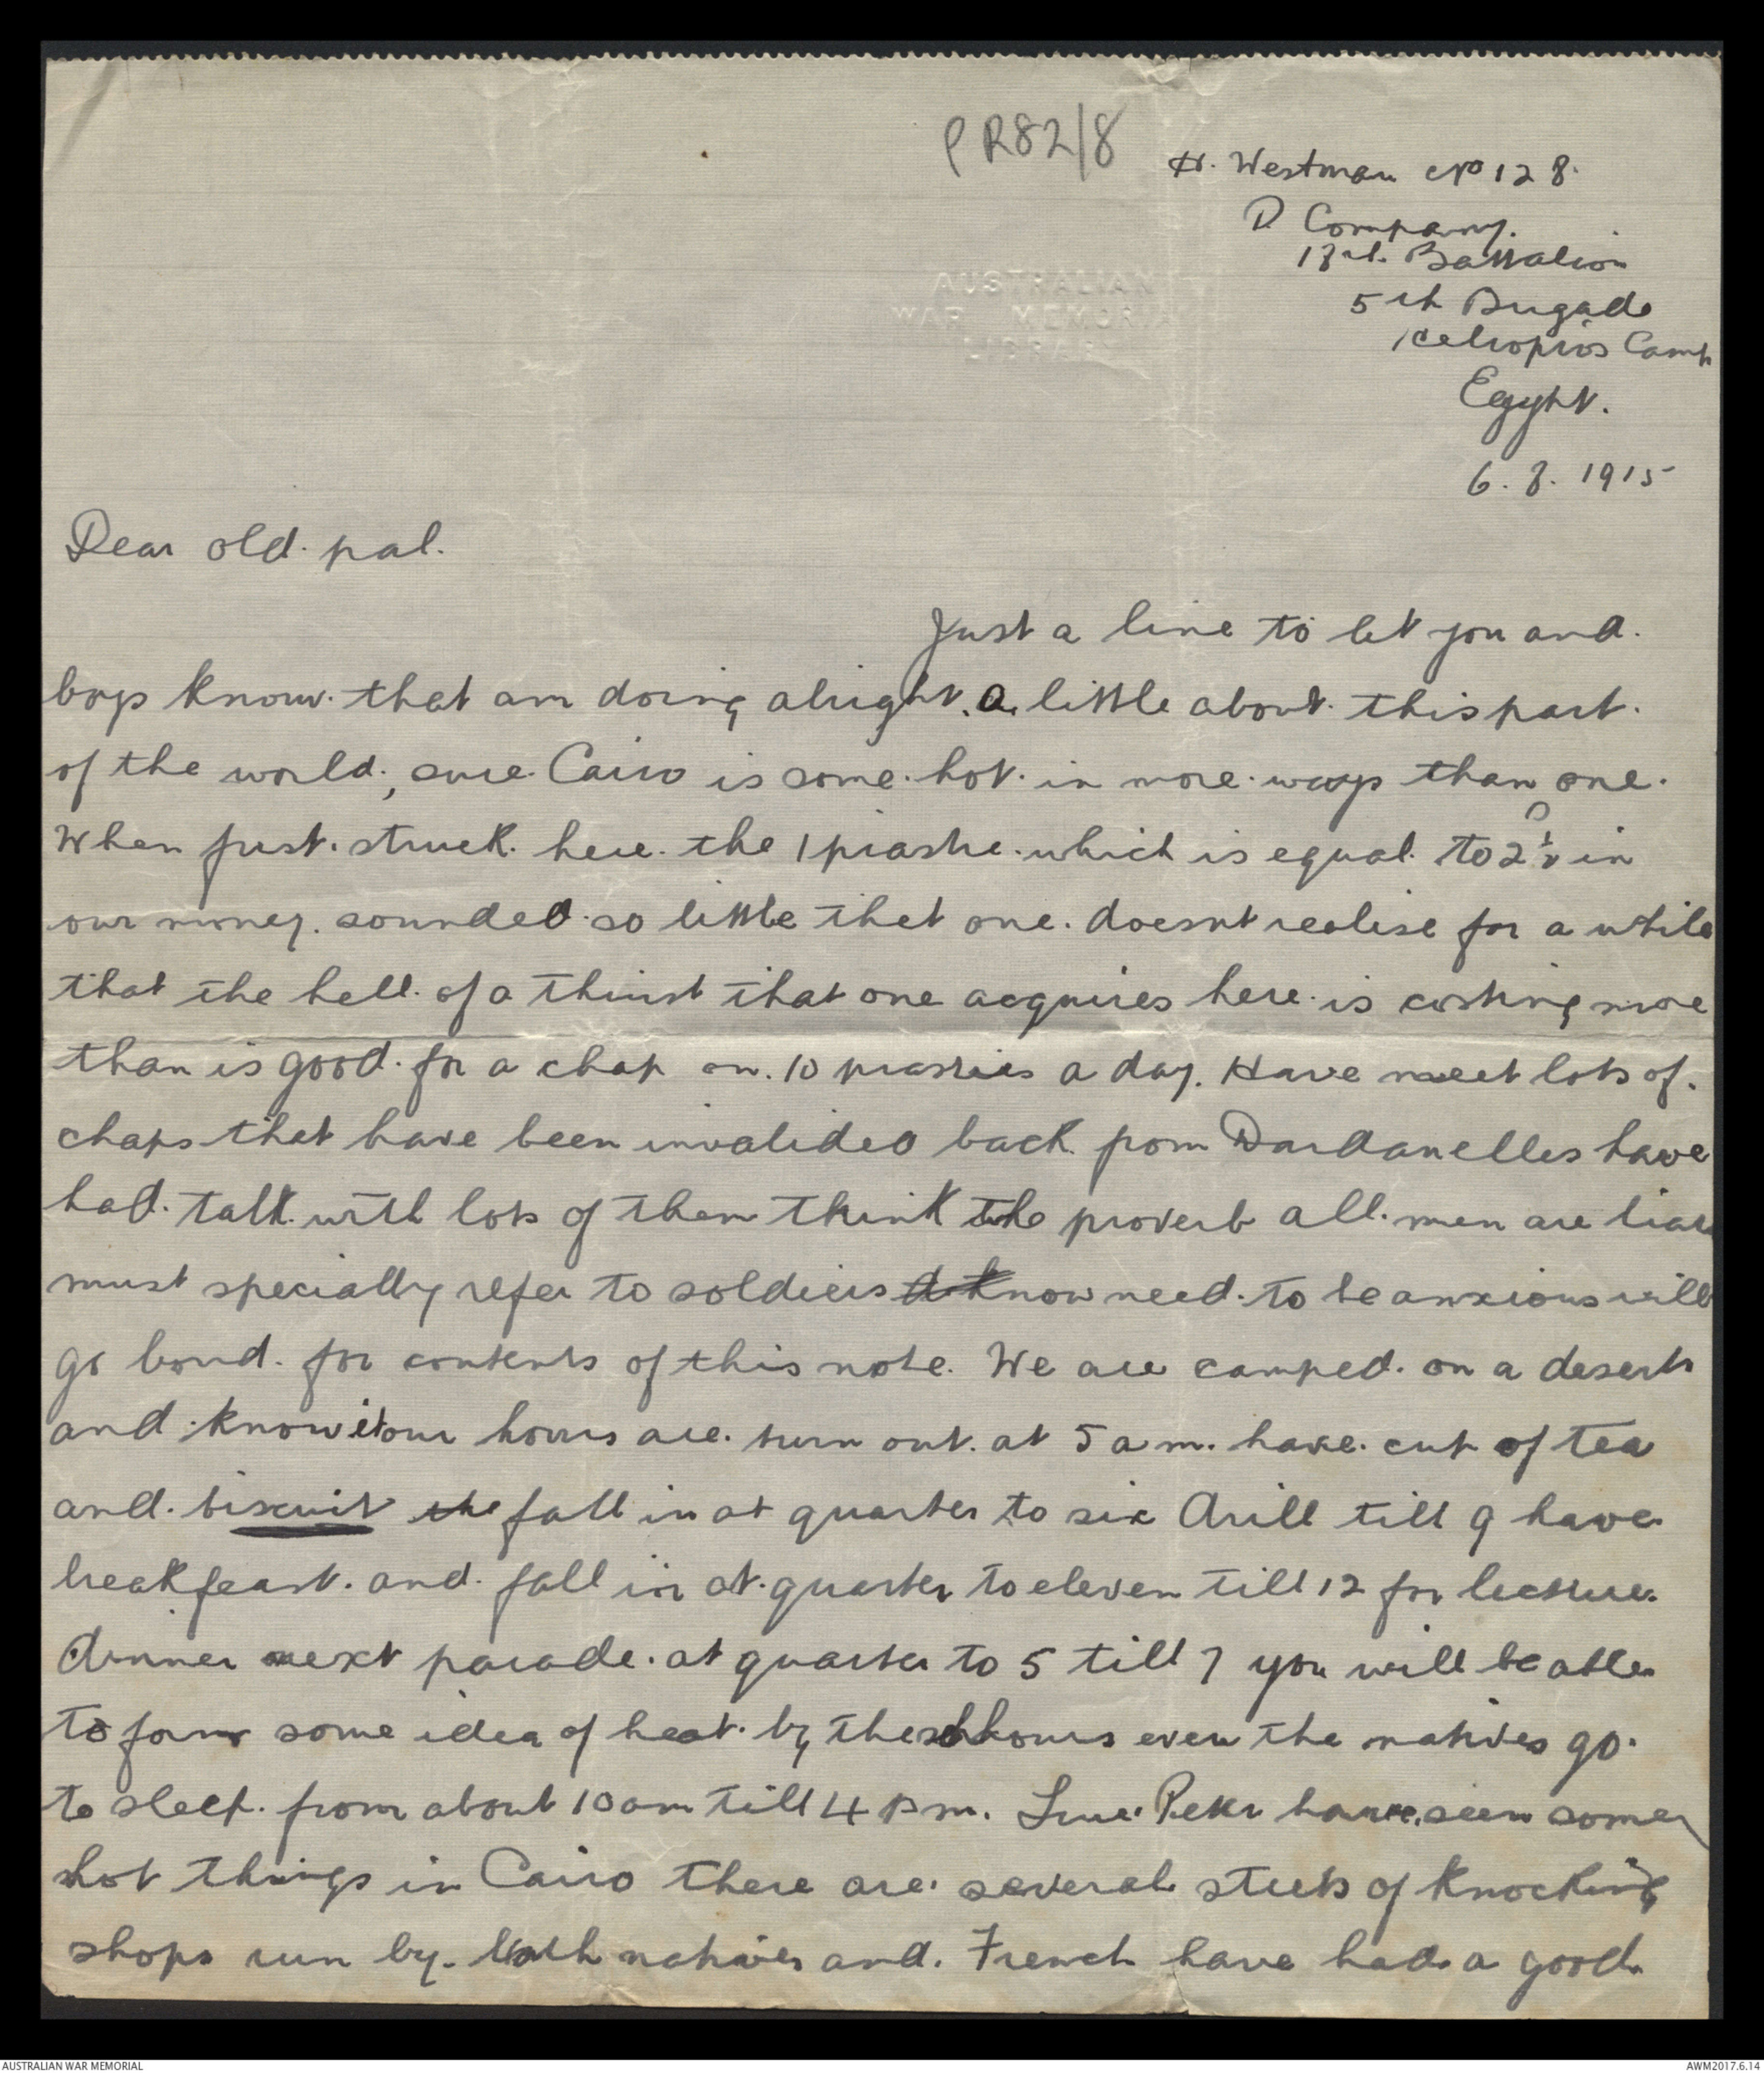 PR82/8
H. Westman No 128.
D Company.
Battalion
5th Brigade
Camp
Egypt.
6. 8. 1915
AUSTRALIAN
WAR MEMORIAL
LIBRARY
Dear old pal.
Just a line to let you and.
boys know. that am doing alright. a little about this part.
of the world, sure Cairo is some. hot. in more ways than one.
When first. struck. here. the 1 piastre. which is equal. to 2½ D in
our money. sounded so little that one. doesnt realise for a while
that the hell. of a thirst that one acquires here. is costing more
than is good. for a chap on. 10 piastres a day. Have meet lots of.
chaps that have been invalided back from Dardanelles have
had. talk. with lots of them think the proverb all. men are liars
must specially refer to soldiers know need. to be anxious will
go bond. for contents of this note. We are camped. on a desert
and. know it our hours are. turn out. at 5 a m. have. cup of tea
and. biscuit the fall in at quarter to six drill till 9 have
breakfeast. and. fall in at. quarter to eleven till 12 for lecture.
dinner next parade. at quarter to 5 till 7 you will be able
to form some idea of heat. by these hours even the natives go.
to sleep. from about 10 am till 4 pm. Peter have. seen some
hot things in Cairo there are. several streets of knocking
shops run by. both natives and. French have had a good
AUSTRALIAN WAR MEMORIAL
AWM2017.6.14